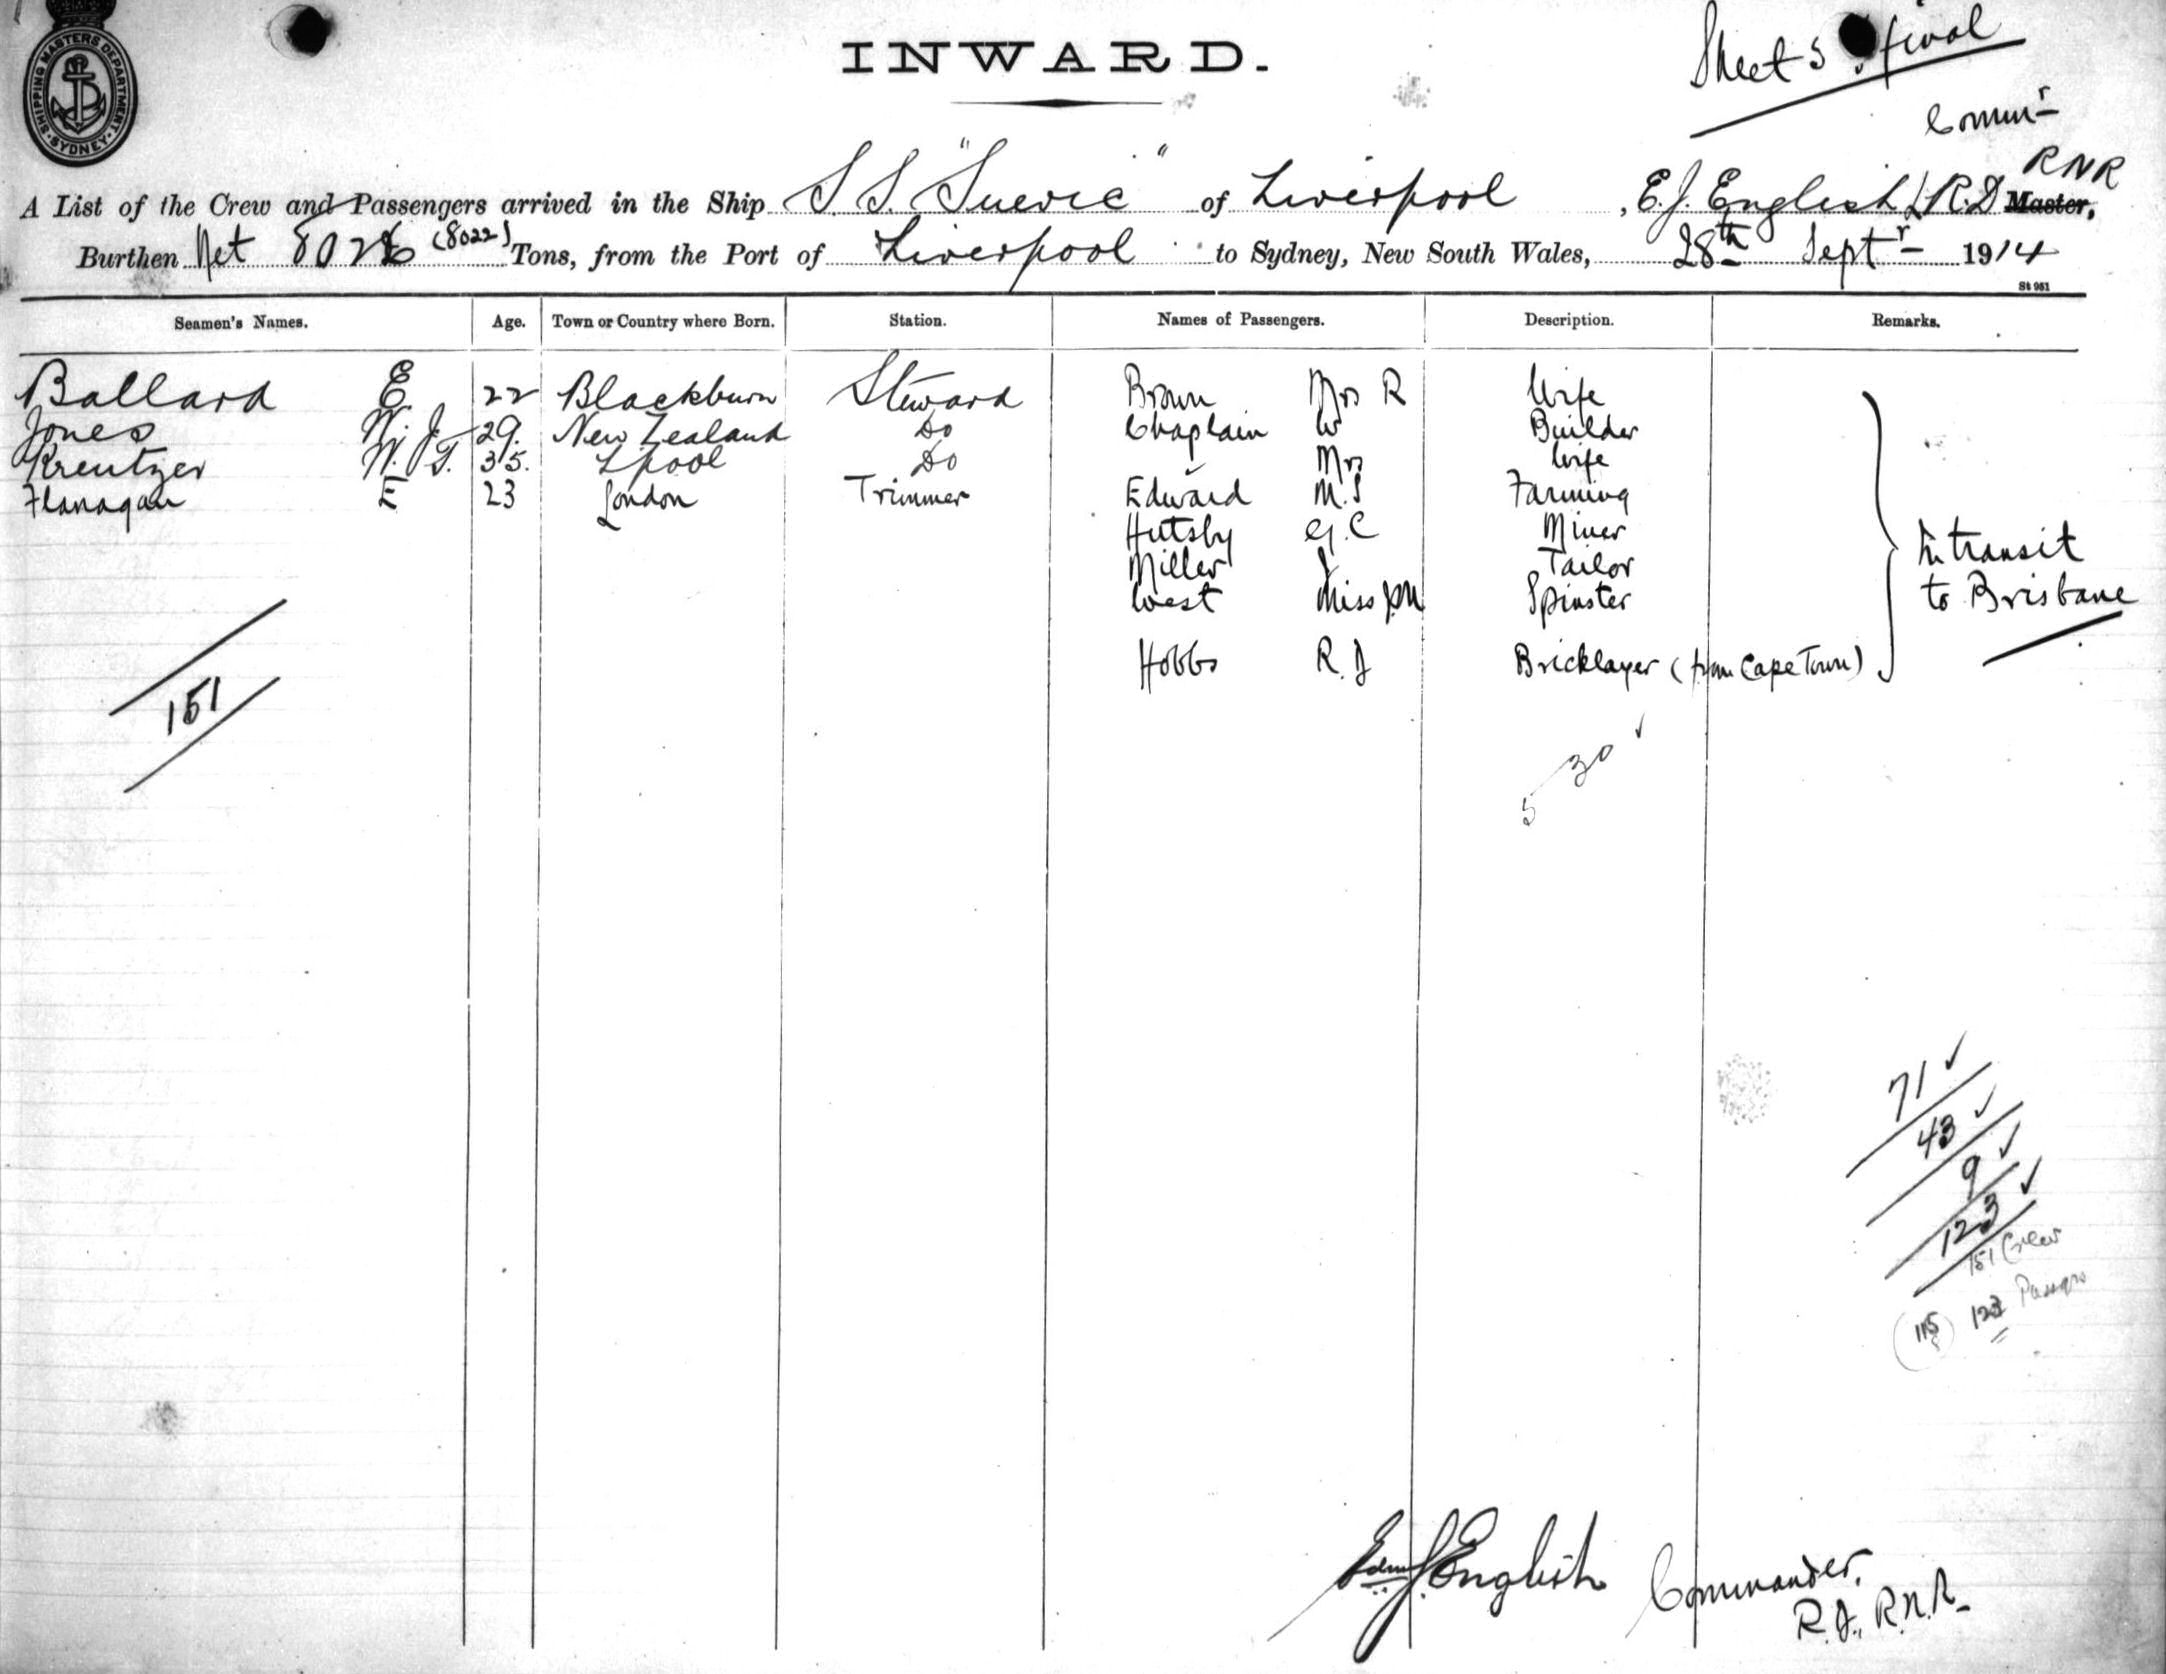 SHIPPING MASTERS DEPARTMENT SYDNEY
INWARD.
Sheet 5 final
Commr
RNR
A List of the Crew and Passengers arrived in the Ship S.S. "Suevic" of Liverpool, E. J. English R.D Master,
Burthen Net 802 (8022) Tons, from the Port of Liverpool to Sydney, New South Wales, 28th Septr 1914
St 951
Seamen's Names. Age. Town or Country where Born. Station. Names of Passengers. Description. Remarks.
Ballard E. 22 Blackburn Steward Brown Mrs R Wife
Jones W. J. 29. New Zealand Do Chaplain W Builder
Kreutzer W. G. 35. Lpool Do Mrs Wife
Flanagan E 23 London Trimmer Edward M.S Farming
Hutsby G. C Miner
Miller J Tailor
West Miss Spinster
In transit
to Brisbane
Hobbs R. J Bricklayer (from Cape Town)
151
30
5
71
43
9
123
151 Crew
115 123 Passgrs
Edm J. English Commander,
R.D., R.N.R.